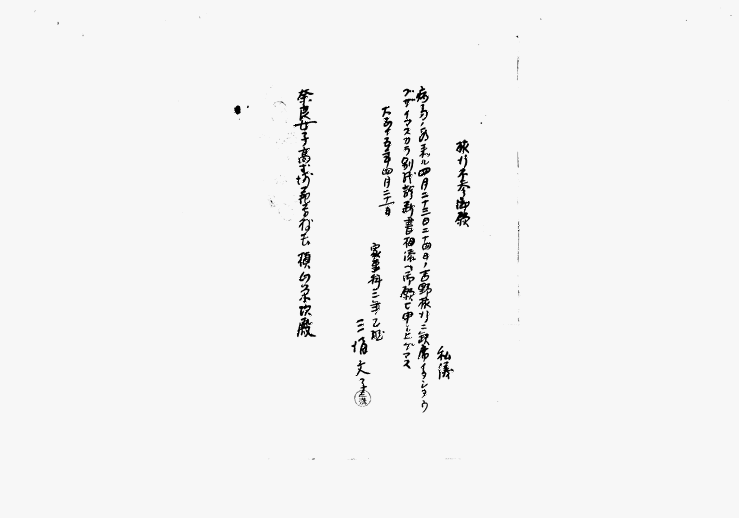 旅行不参御願
私儀
病気ノ為来ル四月二十三日二十四日ノ吉野旅行ニ欠席イタシタウ
ゴザイマスカラ別紙診断書相添ヘ御願ヒ申上ゲマス
大正十五年四月二十一日
家事科二年乙組
三浦文子
奈良女子高等師範学校長 槇山栄次殿